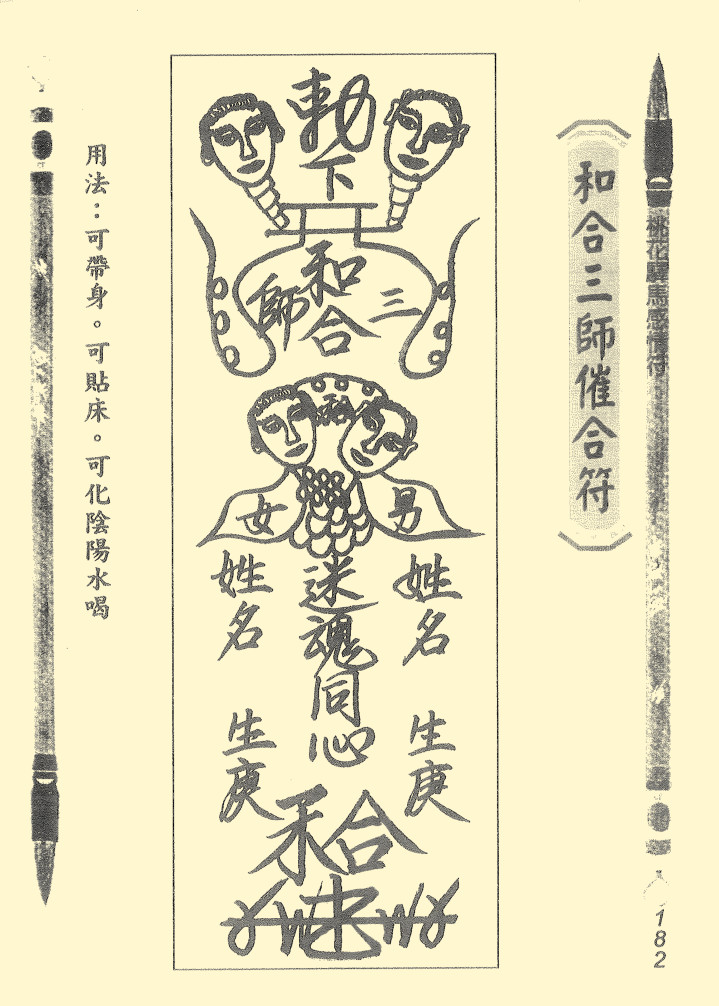 桃花驛馬感情符
182
和合三師催合符
勅下
和合
三
師
和
男
女
姓名
生庚
迷魂同心
姓名
生庚
和合
用法：可帶身。可貼床。可化陰陽水喝